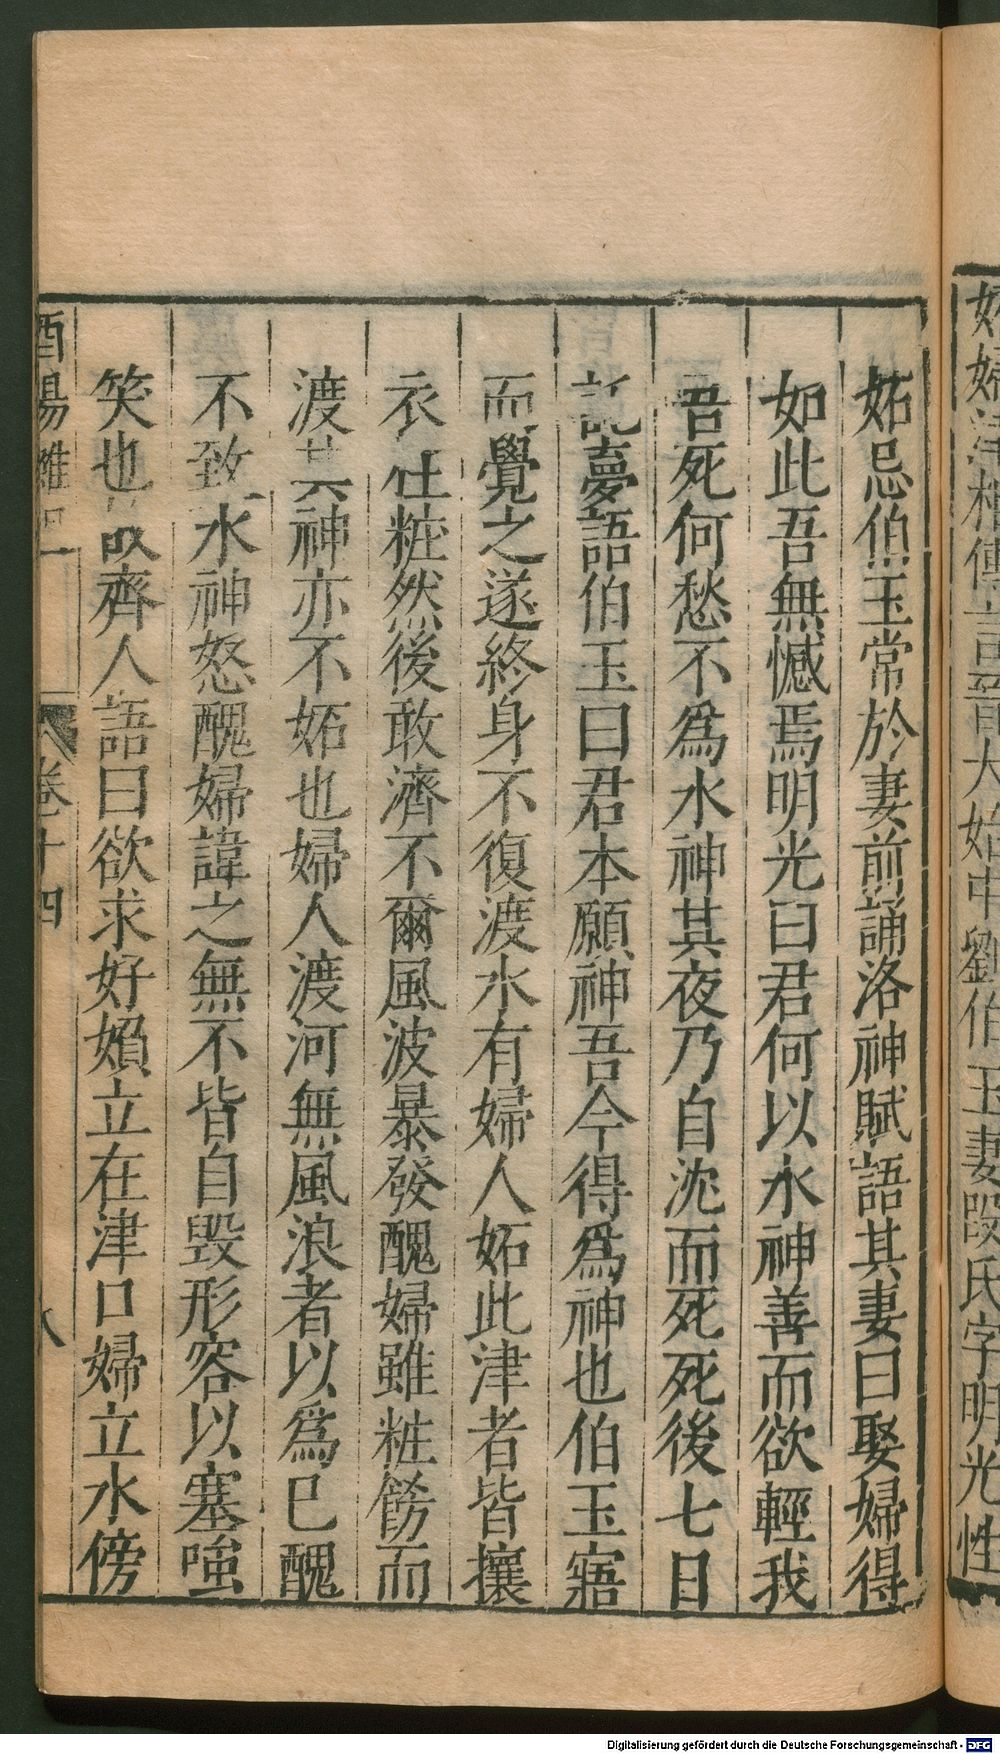 妬婦津相傳言晉大始中劉伯玉妻段氏字明光性
妬忌伯玉常於妻前誦洛神賦語其妻曰娶婦得
如此吾無憾焉明光曰君何以水神善而欲輕我
吾死何愁不爲水神其夜乃自沈而死死後七日
託夢語伯玉曰君本願神吾今得爲神也伯玉寤
而覺之遂終身不復渡水有婦人妬此津者皆攘
衣壯粧然後敢濟不爾風波暴發醜婦雖粧飾而
渡其神亦不妬也婦人渡河無風浪者以爲已醜
不致水神怒醜婦諱之無不皆自毀形容以塞嗤
笑也故齊人語曰欲求好婦立在津口婦立水傍
酉陽雜俎 卷十四 八
Digitalisierung gefördert durch die Deutsche Forschungsgemeinschaft - DFG